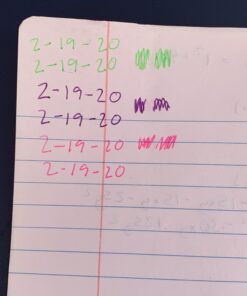 2-19-20
2-19-20
2-19-20
2-19-20
2-19-20
2-19-20